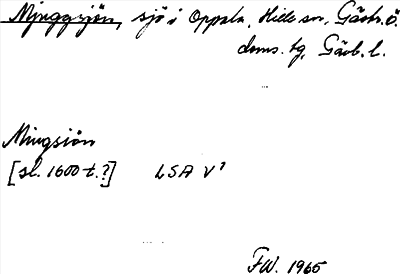 Mynggsjön, sjö i Oppala, Hille sn, Gästr. ö.
doms. tg, Gävb. l.
Mingsiön
[sl. 1600-t.?] LSA V?
FW. 1965